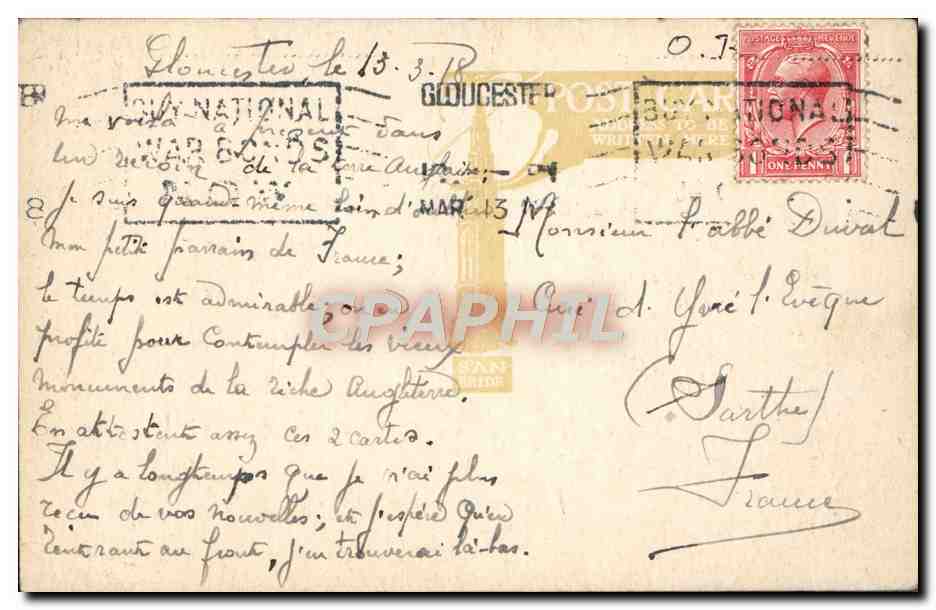 Gloucester, le 13-3-18
O.
POSTAGE REVENUE
ONE PENNY
GLOUCESTER
MAR 13
BUY NATIONAL
WAR BONDS
BUY NATIONAL
WAR BONDS
POST CARD
ADDRESS TO BE
WRITTEN HERE
Me voilà à présent dans
un recoin de la terre Anglaise;
Je suis quand-même loin
Mon petit parrain de France;
le temps est admirable; on en
profite pour contempler les vieux
monuments de la riche Angleterre.
En attestent assez ces 2 cartes.
Il y a longtemps que je n'ai plus
recu de vos nouvelles; et j'espère qu'en
rentrant au front, j'en trouverai là-bas.
Monsieur l'abbé Duval
Curé d. Yvré l'Evèque
(Sarthe)
France
CPAPHIL